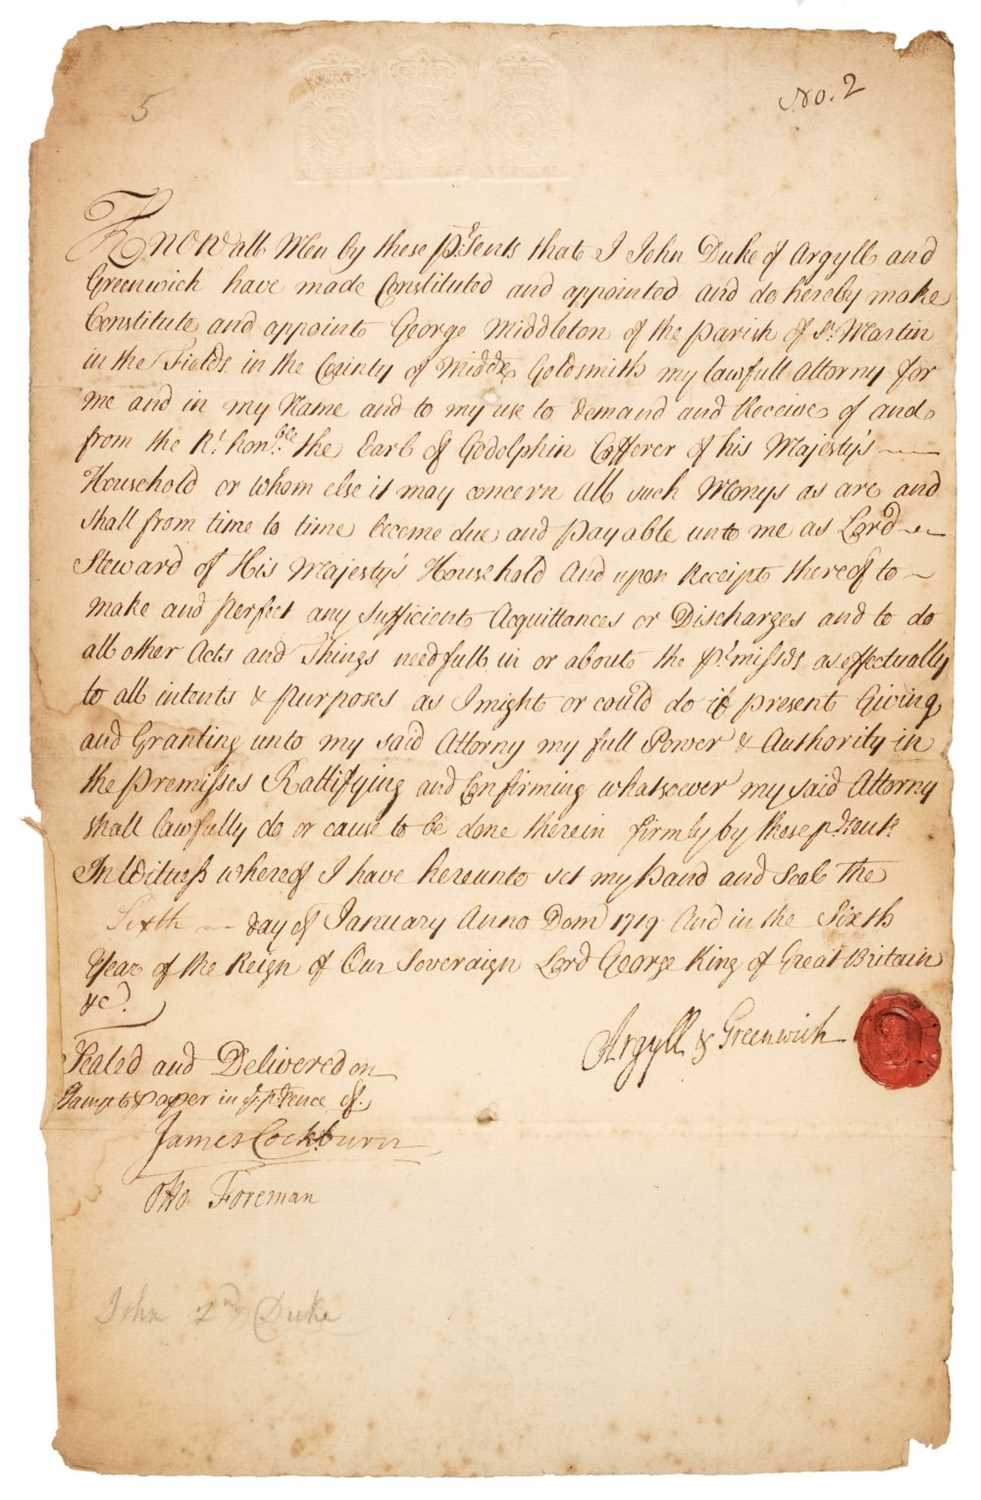 5
No. 2
Know all Men by these p^rsents that I John Duke of Argyll and
Greenwich have made Constituted and appointed and do hereby make
Constitute and appoint George Middleton of the parish of S^t. Martin
in the Fields in the County of Midd^x Goldsmith my lawfull Attorny for
me and in my Name and to my use to demand and Receive of and
from the R^t. hon^ble. the Earl of Godolphin Cofferer of his Majesty's
Household or whom else it may concern All such Monys as are and
shall from time to time become due and payable unto me as Lord
Steward of His Majesty's Household And upon Receipt thereof to
make and perfect any sufficient Acquittances or Discharges and to do
all other Acts and Things needfull in or about the p^rmisses as effectually
to all intents & purposes as I might or could do if present Giving
and Granting unto my said Attorny my full Power & Authority in
the premisses Rattifying and Confirming whatsoever my said Attorny
shall lawfully do or cause to be done therein firmly by these p^rsents
In Witness whereof I have hereunto set my hand and Seal the
Sixth day of January Anno Dom 1719 And in the Sixth
Year of the Reign of Our Soveraign Lord George King of Great Britain
&c.
Argyll & Greenwich
Sealed and Delivered on
Stampt paper in y^e p^rsence of
James Cockburn
Otto Foreman
John 2^nd Duke